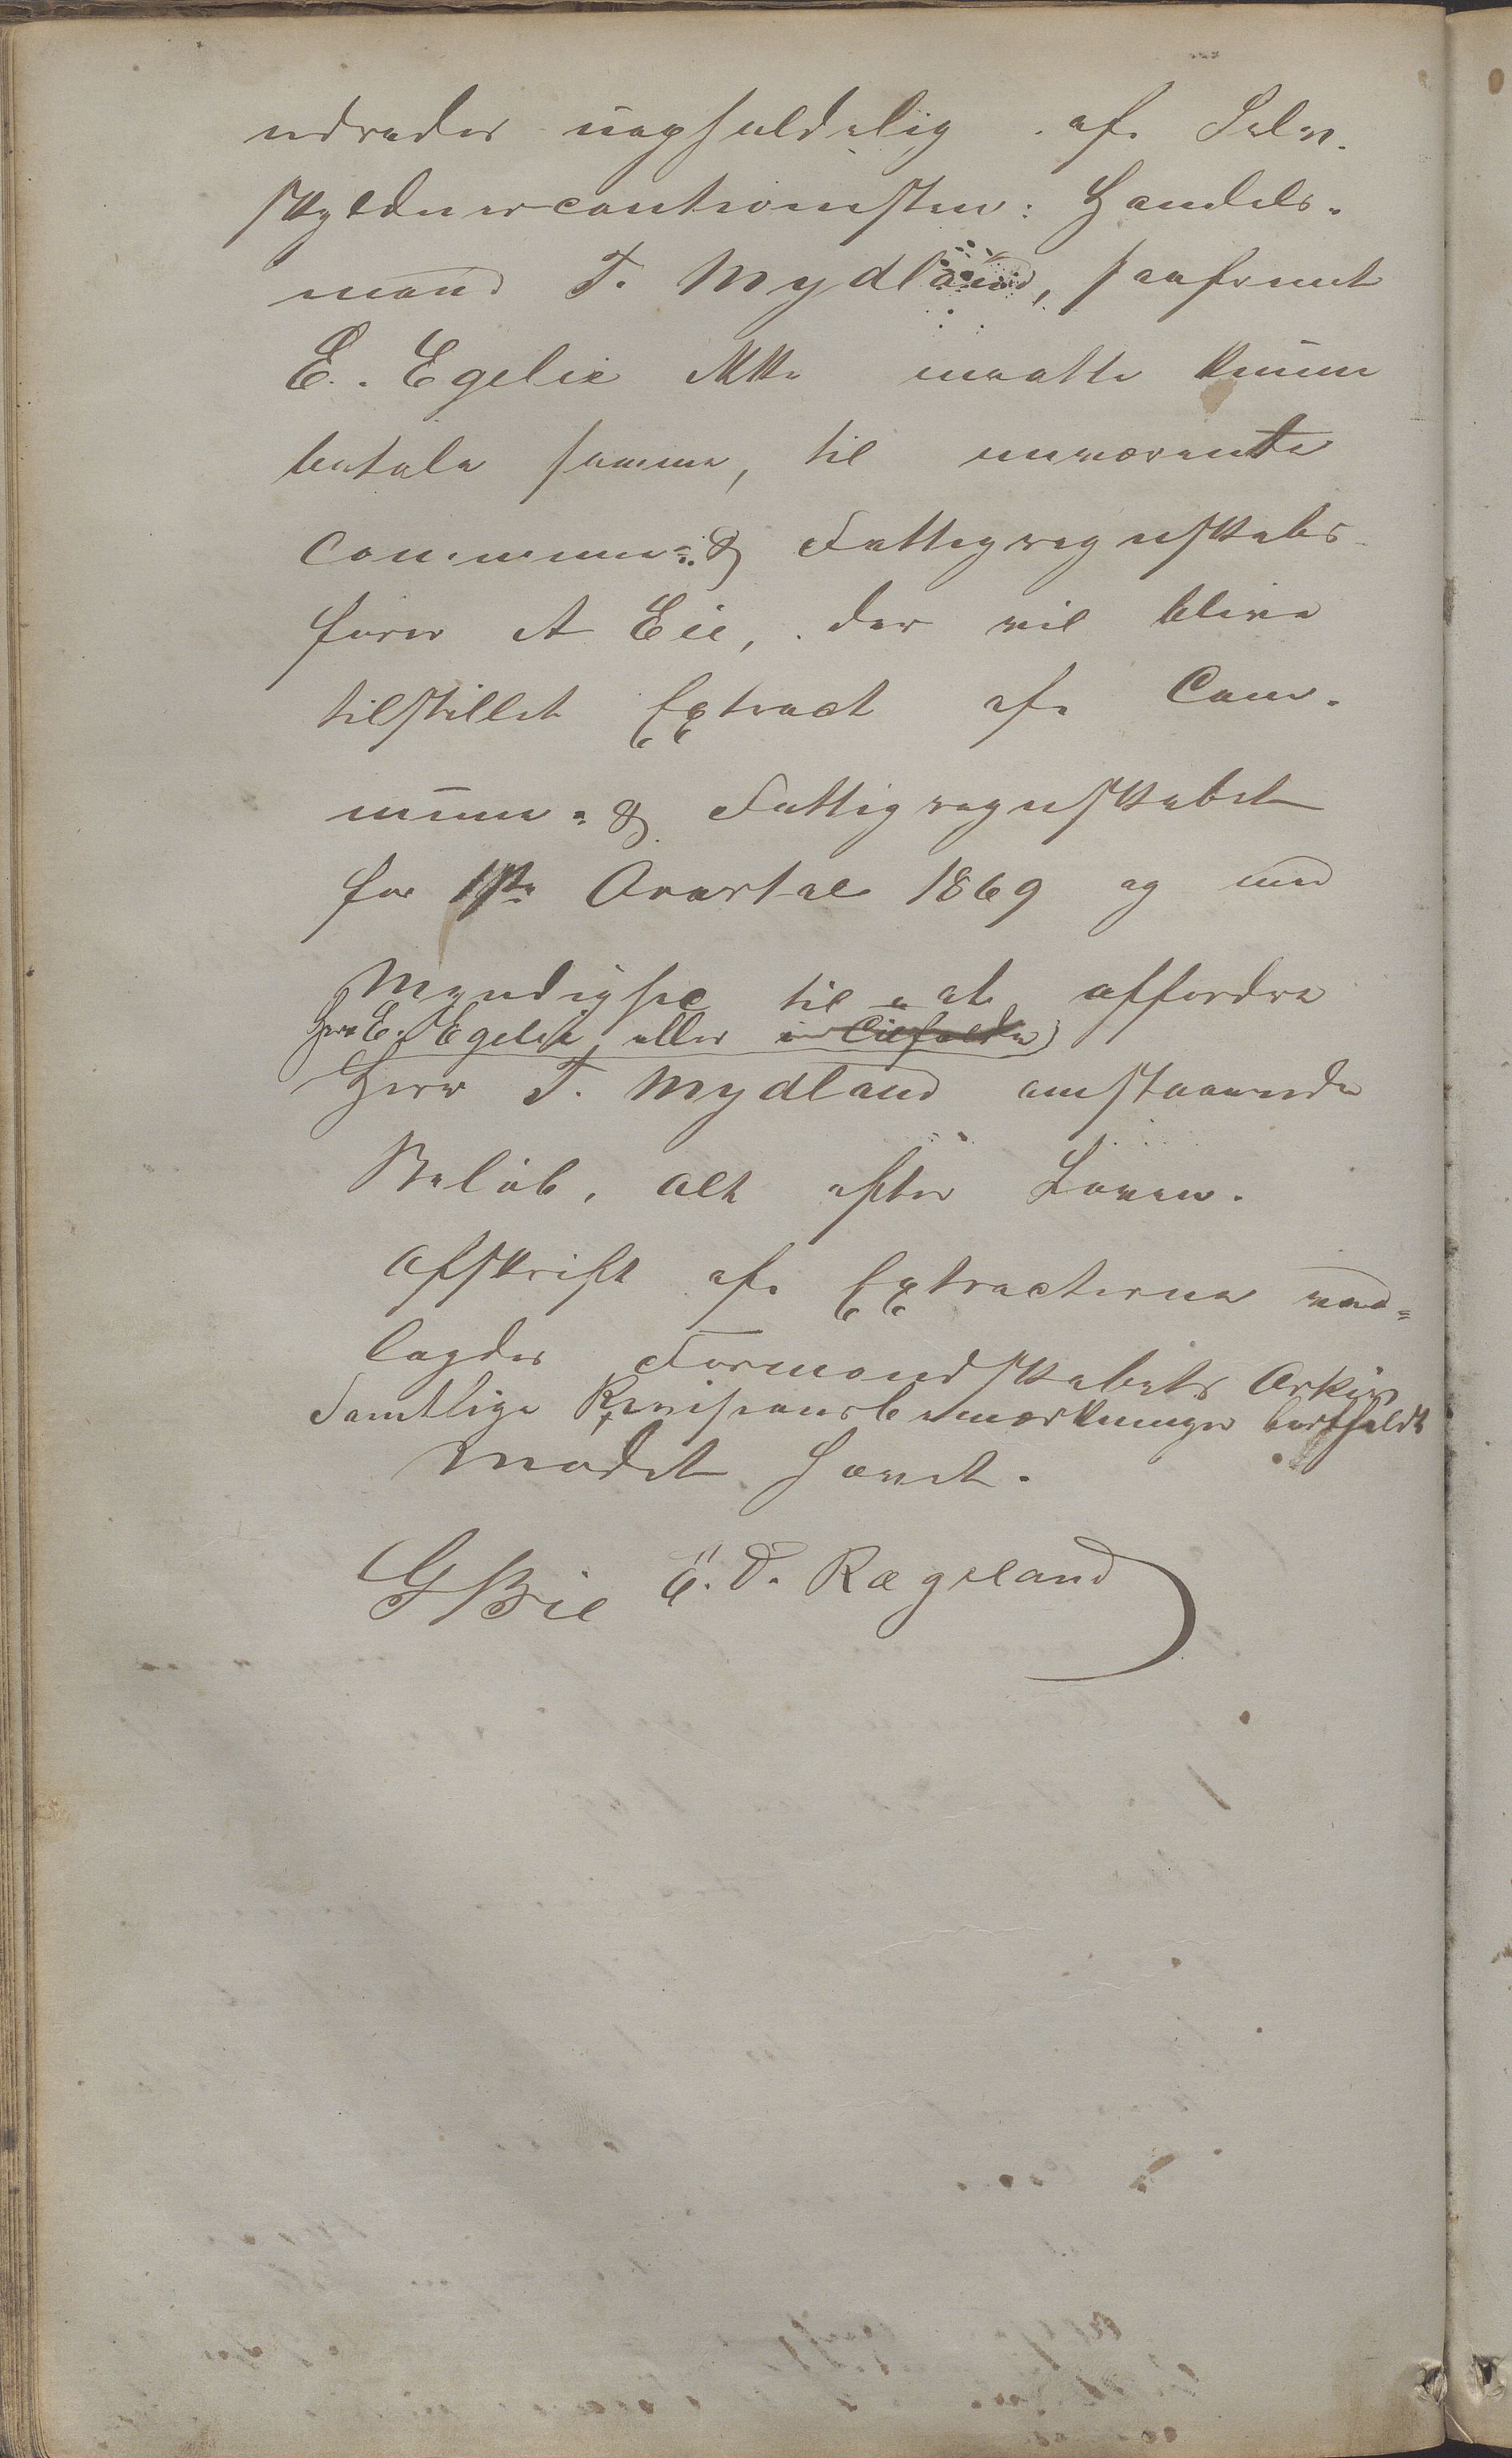 udredes uopholdelig af Selv-
skyldnercautionisten: Handels-
mand T. Mydland, saafremt
E. Egelie ikke maatte kunne
betale samme, til nuværende
Commune- & Fattigregnskabs
fører A Eie, der vil blive
tilstillet Extract af Com-
mune- & Fattigregnskabet
for 1ste Qvartal 1869 og med
Myndighed til at affordre
Herr E. Egelie eller i Tilfælde
Herr T. Mydland omstaaende
Beløb, alt efter Loven.
Afskrift af Extracterne ved-
lagdes Formandskabets Arkiv
Samtlige Revisionsbemærkninger bortfaldt
Mødet hævet.
G Bie E. D. Rægeland